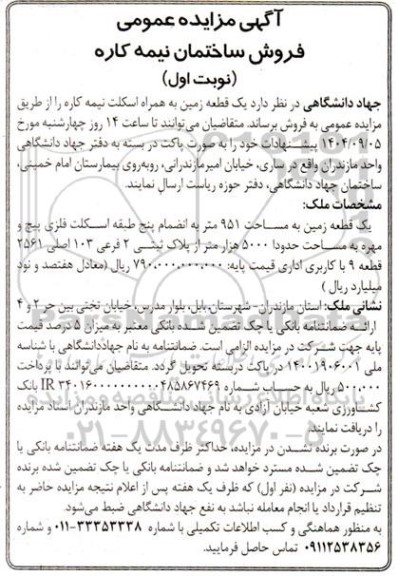 آگهی مزایده عمومی
فروش ساختمان نیمه کاره
(نوبت اول)
جهاد دانشگاهی در نظر دارد یک قطعه زمین به همراه اسکلت نیمه کاره را از طریق
مزایده عمومی به فروش برساند. متقاضیان می‌توانند تا ساعت ۱۴ روز چهارشنبه مورخ
۱۴۰۴/۰۹/۰۵ پیشنهادات خود را به صورت پاکت در بسته به دفتر جهاد دانشگاهی
واحد مازندران واقع در ساری، خیابان امیرمازندرانی، روبه‌روی بیمارستان امام خمینی،
ساختمان جهاد دانشگاهی، دفتر حوزه ریاست ارسال نمایند.
مشخصات ملک:
یک قطعه زمین به مساحت ۹۵۱ متر به انضمام پنج طبقه اسکلت فلزی پیچ و
مهره به مساحت حدودا ۵۰۰۰ هزار متر از پلاک ثبتی ۲ فرعی ۱۰۳ اصلی ۲۵۶۱
قطعه ۹ با کاربری اداری قیمت پایه: ۷۹۰.۰۰۰.۰۰۰.۰۰۰ ریال (معادل هفتصد و نود
میلیارد ریال)
نشانی ملک: استان مازندران- شهرستان بابل، بلوار مدرس، خیابان تختی بین حر ۲ و ۴
ارائه ضمانتنامه بانکی یا چک تضمین شده بانکی معتبر به میزان ۵ درصد قیمت
پایه جهت شرکت در مزایده الزامی است. ضمانتنامه به نام جهاددانشگاهی با شناسه
ملی ۱۴۰۰۱۹۰۶۰۰۱ در پاکت دربسته تحویل گردد. متقاضیان می‌توانند با پرداخت
۵۰۰.۰۰۰ ریال به حساب شماره IR ۳۴۰۱۶۰۰۰۰۰۰۰۰۰۰۴۸۵۸۶۷۴۶۹ بانک
کشاورزی شعبه خیابان آزادی به نام جهاد دانشگاهی واحد مازندران اسناد مزایده
را دریافت نمایند.
در صورت برنده نشدن در مزایده، حداکثر ظرف مدت یک هفته ضمانتنامه بانکی یا
چک تضمین شده مسترد خواهد شد و ضمانتنامه بانکی یا چک تضمین شده برنده
شرکت در مزایده (نفر اول) که ظرف یک هفته پس از اعلام نتیجه مزایده حاضر به
تنظیم قرارداد یا انجام معامله نباشد به نفع جهاد دانشگاهی ضبط می‌شود.
به منظور هماهنگی و کسب اطلاعات تکمیلی با شماره ۳۳۳۵۳۳۳۸-۰۱۱ و شماره
۰۹۱۱۲۵۳۸۳۵۶ تماس حاصل فرمایید.
پایگاه اطلاع رسانی مناقصه و مزایده
۰۲۱-۸۸۳۴۹۶۷۰-۵